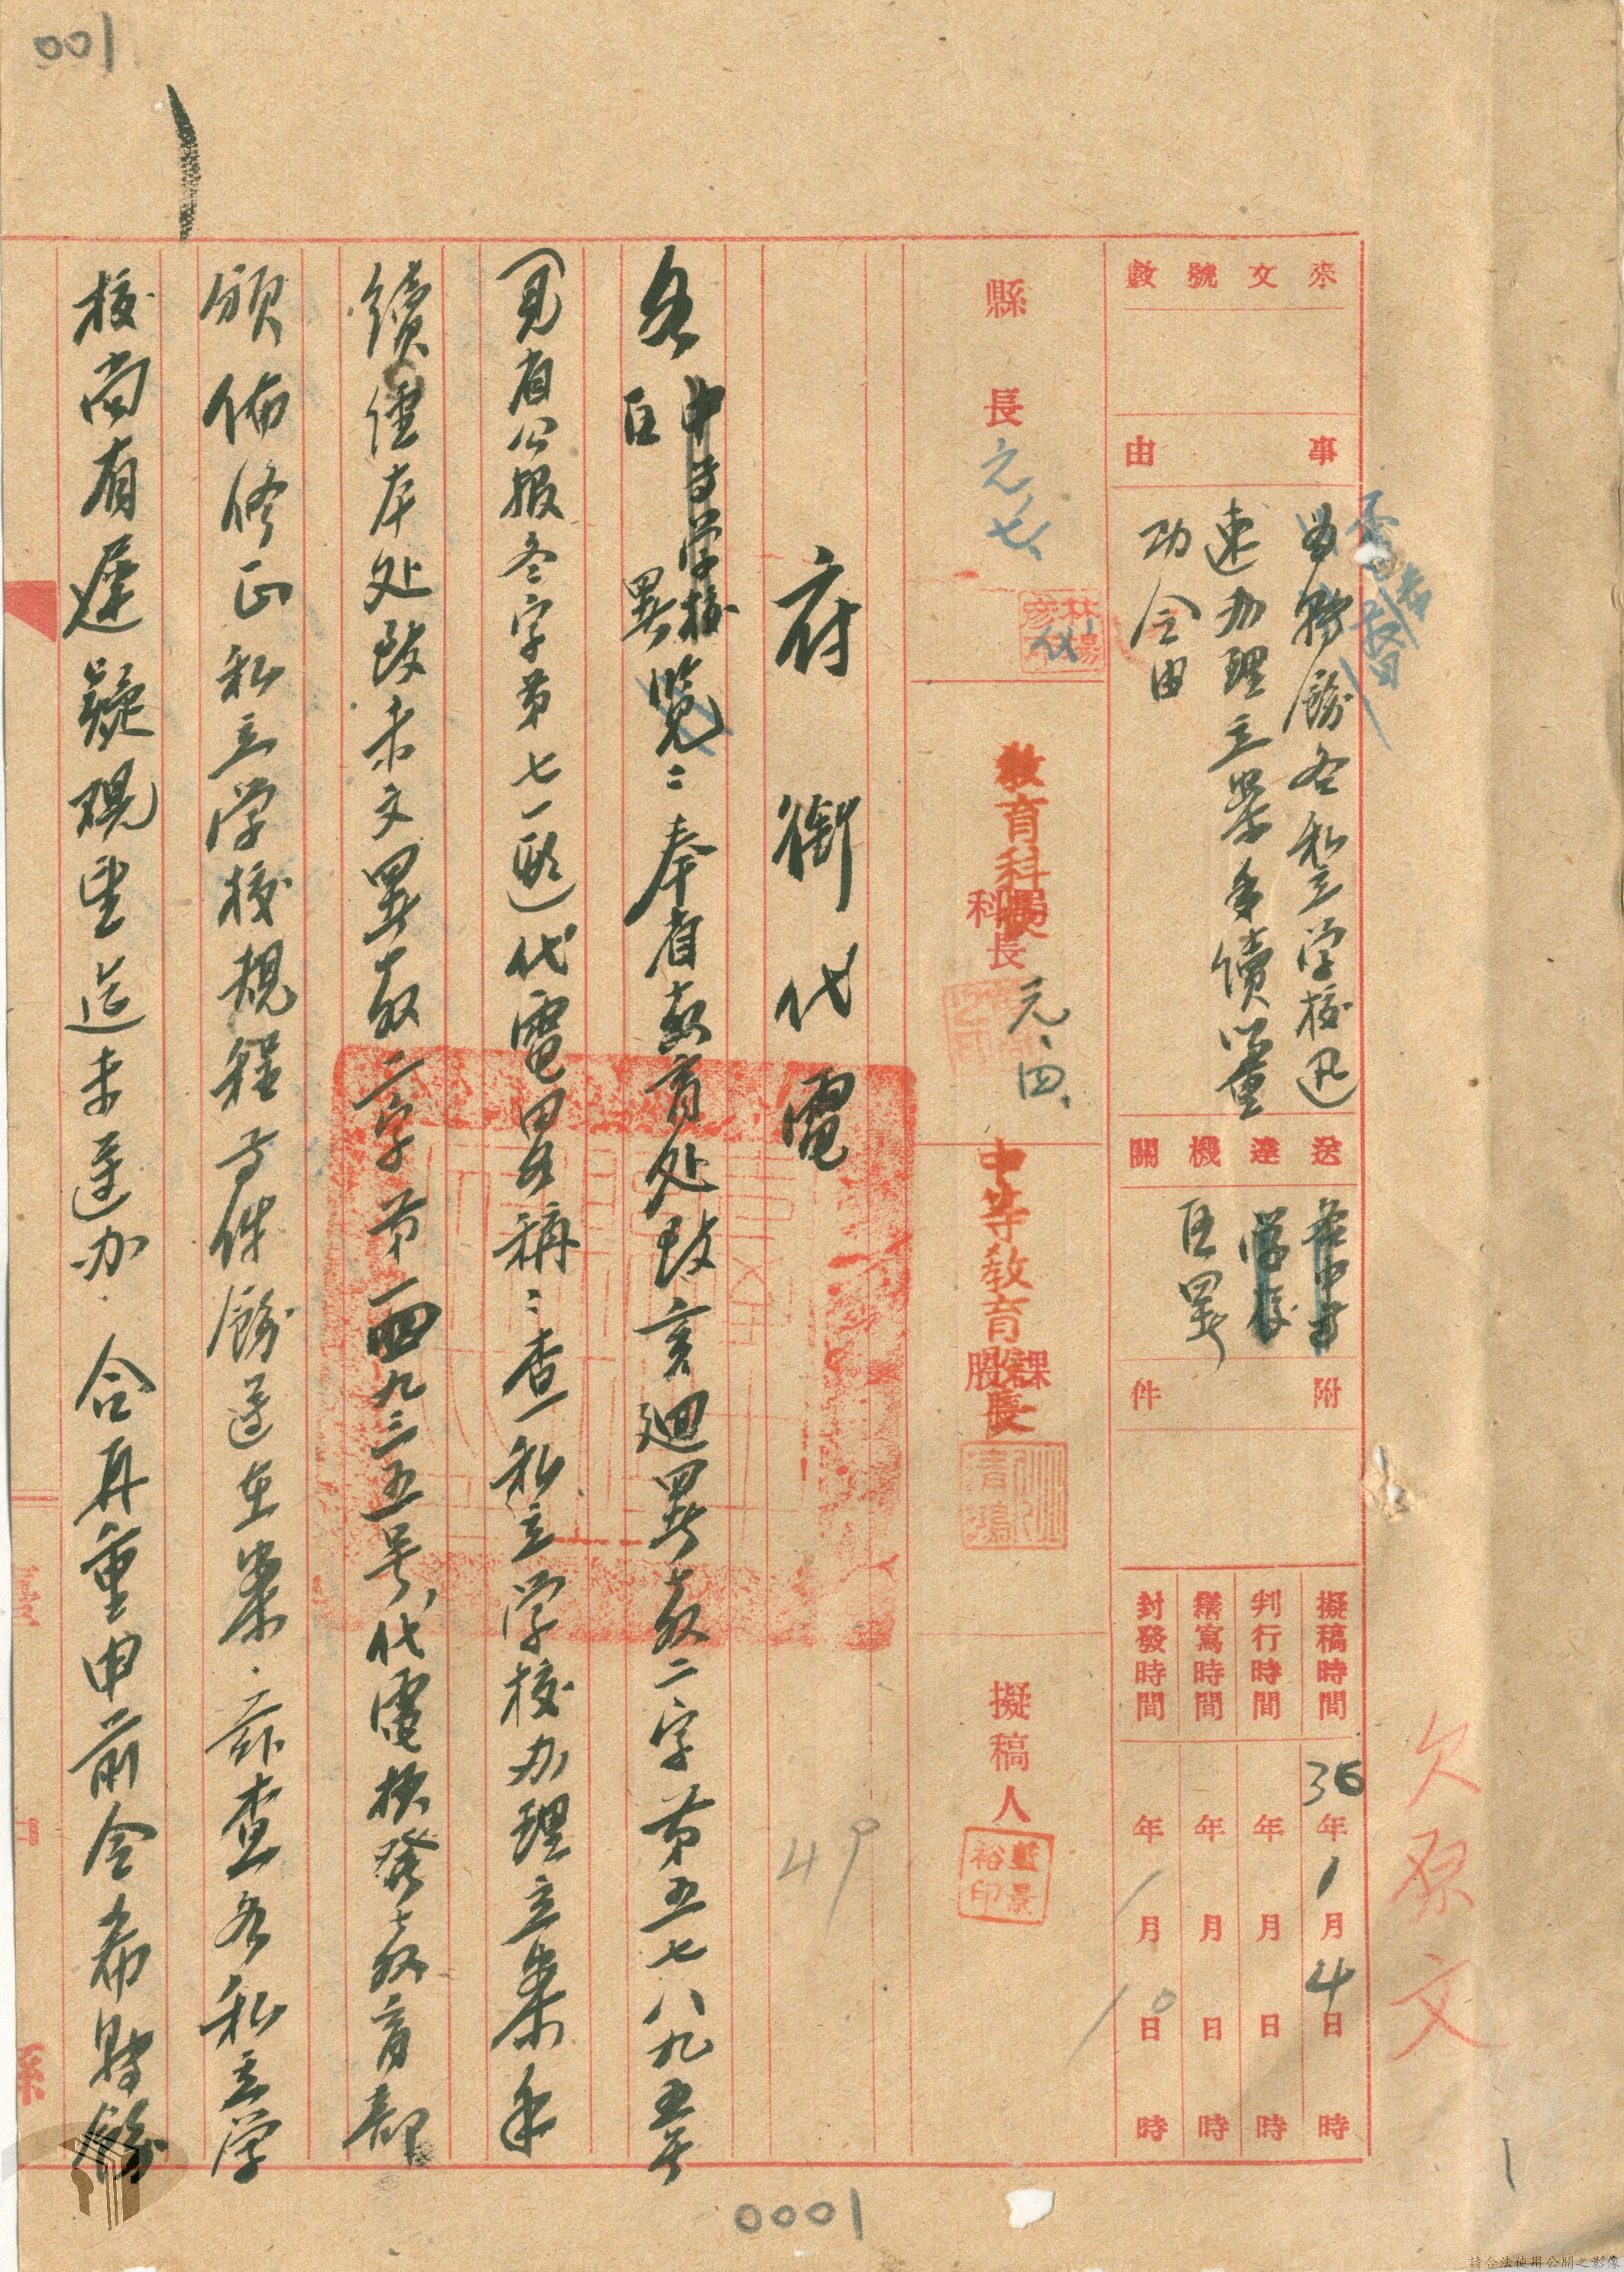 001
來文號數
事由
為轉飭各私立學校迅
速办理立案手續以重
功令由
送達機關
各中等
学校
区署
附件
擬稿時間 36年1月4日時
判行時間 年月日時
繕寫時間 年月日時
封發時間 年1月10日時
欠原文
縣長 元、七、
代
教育科長
局科長 元、四、
中等教育股長
課股長
擬稿人
藍景裕印
府銜代電
49
各中等学校
区署覽：奉省教育处致亥迴署教二字第五七八九五号
(見省公报冬字第七一
代電畧稱：查私立学校办理立案手
續僅本处致未文署教二字第一四九三五号代電檢發教育部
頒佈修正私立学校規程方件飭遵在案．茲查各私立学
校尚有遲疑观望迄未遵办．合再重申前令希轉飭
0001
1
請合法使用公開之影像